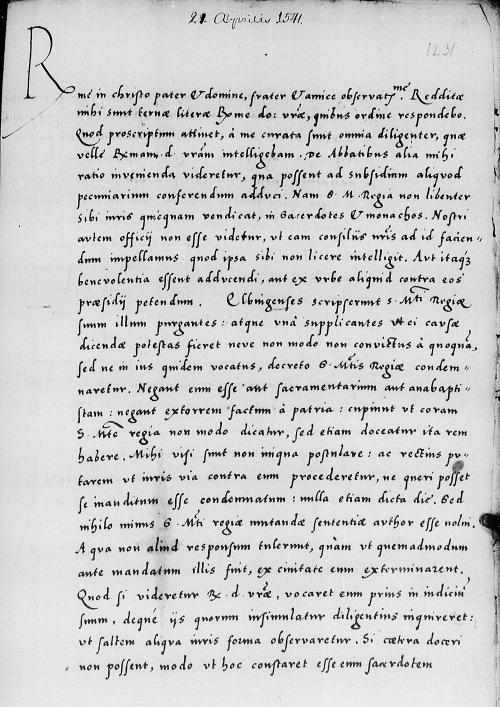 21 Aprilis 1541.
1231
Rme in christo pater & domine, frater & amice observatme. Redditæ
mihi sunt ternæ literæ Rme do: vræ, quibus ordine respondebo.
Quod proscriptum attinet, à me curata sunt omnia diligenter, quæ
velle Rmam. d. vram intelligebam. De Abbatibus alia mihi
ratio invenienda videretur, qua possent ad subsidium aliquod
pecuniarium conferendum adduci. Nam S. M. Regia non libenter
sibi iuris quicquam vendicat, in Sacerdotes & monachos. Nostri
autem officij non esse videtur, ut eam consilijs nris ad id facien-
dum impellamus quod ipsa sibi non licere intelligit. Aut itaqȝ
benevolentia essent adducendi, aut ex urbe aliquid contra eos
præsidij petendum. Elbingenses scripserunt S. Mti Regiæ
suum illum purgantes: atque unà supplicantes ut ei causæ
dicendæ potestas fieret neve non modo non convictus à quoquã,
sed ne in ius quidem vocatus, decreto S. Mtis Regiæ condem-
naretur. Negant eum esse aut sacramentarium aut anabapti-
stam: negant extorrem factum à patria: cupiunt ut coram
S. Mte regia non modo dicatur, sed etiam doceatur ita rem
habere. Mihi visi sunt non iniqua postulare: ac rectius pu-
tarem ut iuris via contra eum procederetur, ne queri posset
se inauditum esse condemnatum: nulla etiam dicta die. Sed
nihilo minus S. Mti regiæ mutandæ sententiæ author esse nolui.
A qua non aliud responsum tulerunt, quàm ut quemadmodum
ante mandatum illis fuit, ex civitate eum exterminarent.
Quod si videretur R. d. vræ, vocaret eum prius in iudiciũ
suum, deque ijs quorum insimulatur diligentius inquireret:
ut saltem aliqua iuris forma observaretur. Si cætera doceri
non possent, modo ut hoc constaret esse eum sacerdotem